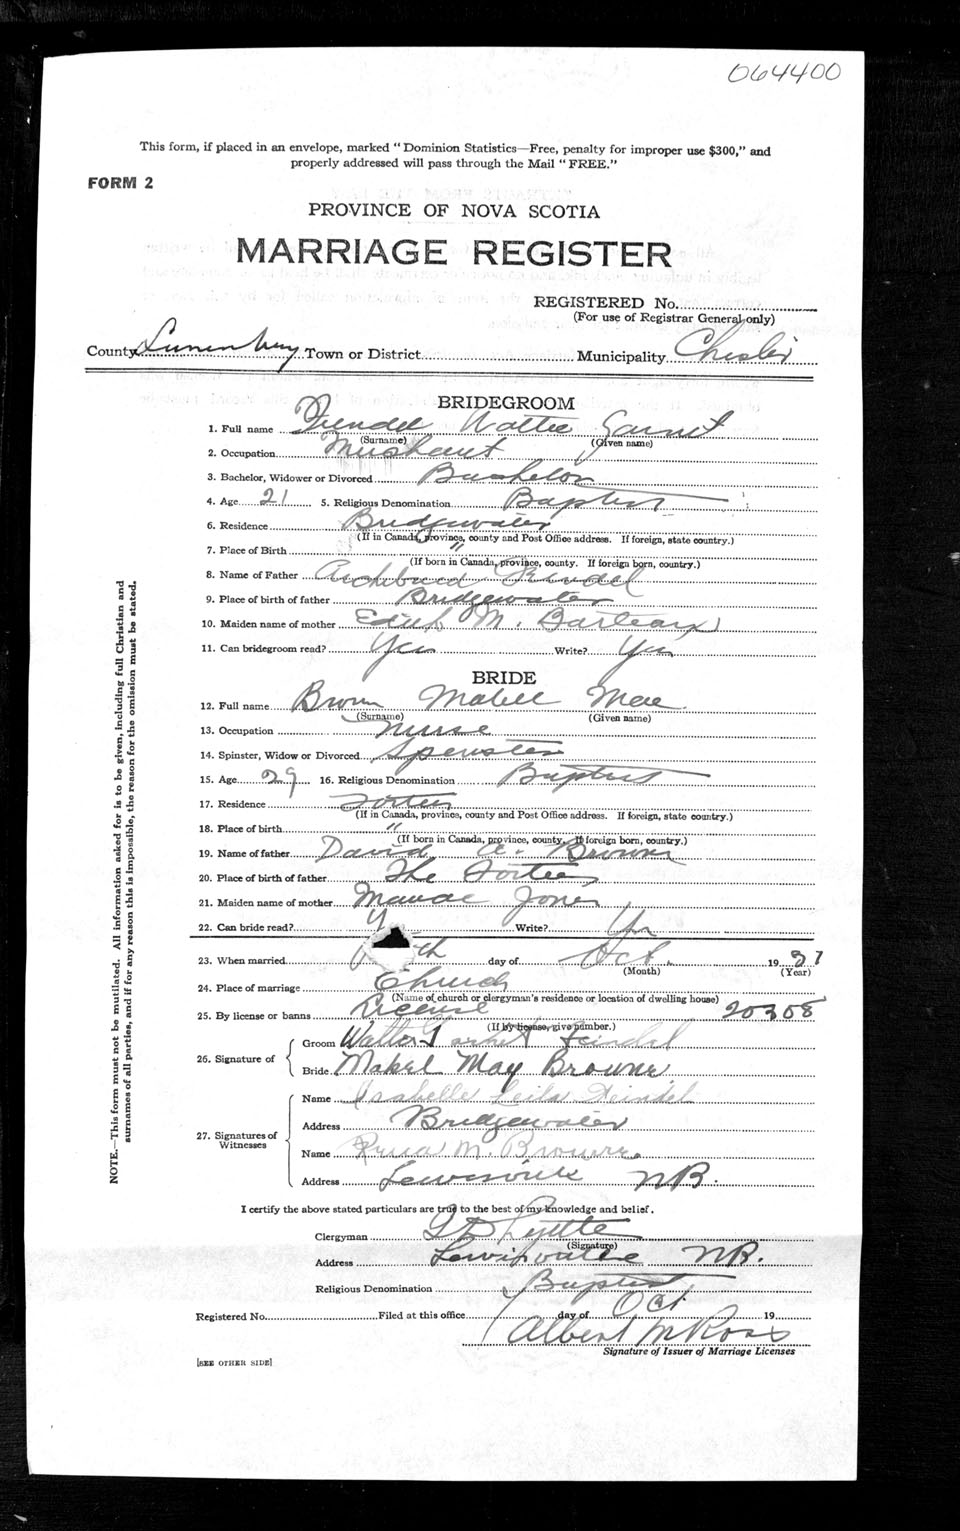 064400
This form, if placed in an envelope, marked "Dominion Statistics—Free, penalty for improper use $300," and
properly addressed will pass through the Mail "FREE."
FORM 2
PROVINCE OF NOVA SCOTIA
MARRIAGE REGISTER
REGISTERED No.
(For use of Registrar General only)
County Lunenburg Town or District Municipality Chester
BRIDEGROOM
1. Full name Walter Garnet
(Surname) (Given name)
2. Occupation
3. Bachelor, Widower or Divorced Bachelor
4. Age 21 5. Religious Denomination Baptist
6. Residence Bridgewater
(If in Canada, province, county and Post Office address. If foreign, state country.)
7. Place of Birth "
(If born in Canada, province, county. If foreign born, country.)
8. Name of Father Archibald
9. Place of birth of father Bridgewater
10. Maiden name of mother Edith M. Barteaux
11. Can bridegroom read? Yes Write? Yes
BRIDE
12. Full name Brown Mabel Mae
(Surname) (Given name)
13. Occupation Nurse
14. Spinster, Widow or Divorced Spinster
15. Age 29 16. Religious Denomination Baptist
17. Residence
(If in Canada, province, county and Post Office address. If foreign, state country.)
18. Place of birth "
(If born in Canada, province, county. If foreign born, country.)
19. Name of father David A. Brown
20. Place of birth of father The
21. Maiden name of mother Jones
22. Can bride read? Y Write? Yes
23. When married th day of Oct. 19
(Month) (Year)
24. Place of marriage Church
(Name of church or clergyman's residence or location of dwelling house)
25. By license or banns License 20308
(If by license, give number.)
26. Signature of
Groom Walter Garnet Feindel
Bride Mabel May Browne
27. Signatures of Witnesses
Name Isabelle Leila Feindel
Address Bridgewater
Name M. Browne
Address Lewisville NB.
I certify the above stated particulars are true to the best of my knowledge and belief.
Clergyman
(Signature)
Address Lewisville NB.
Religious Denomination Baptist
Registered No. Filed at this office day of Oct 19
Albert M Ross
Signature of Issuer of Marriage Licenses
[SEE OTHER SIDE]
NOTE.—This form must not be mutilated. All information asked for is to be given, including full Christian and
surnames of all parties, and if for any reason this is impossible, the reason for the omission must be stated.